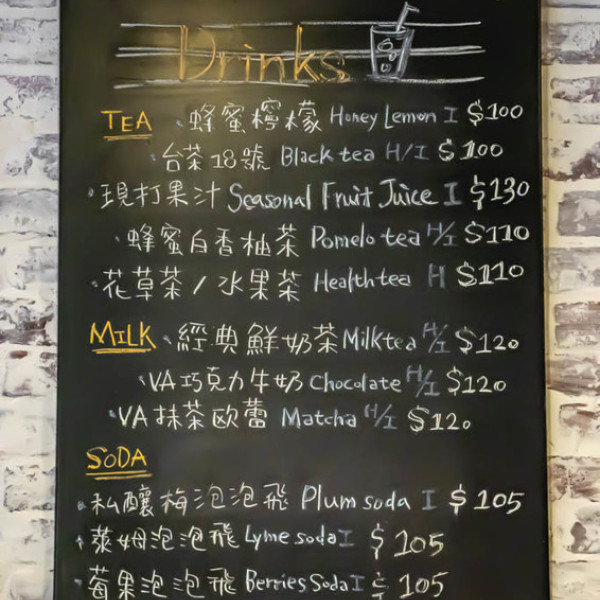 Drinks
TEA 蜂蜜檸檬 Honey Lemon I $100
台茶18號 Black tea H/I $100
現打果汁 Seasonal Fruit Juice I $130
蜂蜜白香柚茶 Pomelo tea H/I $110
花草茶/水果茶 Health tea H $110
MILK 經典鮮奶茶 Milk tea H/I $120
VA巧克力牛奶 Chocolate H/I $120
VA抹茶歐蕾 Matcha H/I $120
SODA
私釀梅泡泡飛 Plum soda I $105
萊姆泡泡飛 Lyme soda I $105
莓果泡泡飛 Berries Soda I $105